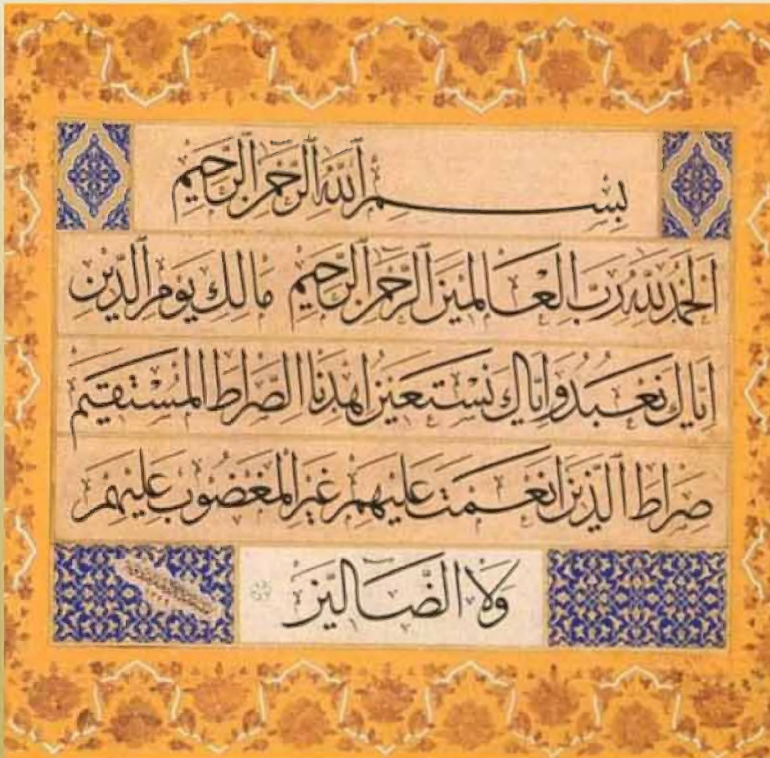 بِسْمِ ٱللّٰهِ ٱلرَّحْمٰنِ ٱلرَّحِيمِ
اَلْحَمْدُ لِلّٰهِ رَبِّ الْعَالَمِينَ اَلرَّحْمٰنِ الرَّحِيمِ مَالِكِ يَوْمِ الدِّينِ
اِيَّاكَ نَعْبُدُ وَاِيَّاكَ نَسْتَعِينُ اِهْدِنَا الصِّرَاطَ الْمُسْتَقِيمَ
صِرَاطَ الَّذِينَ اَنْعَمْتَ عَلَيْهِمْ غَيْرِ الْمَغْضُوبِ عَلَيْهِمْ
وَلَا الضَّالِّينَ